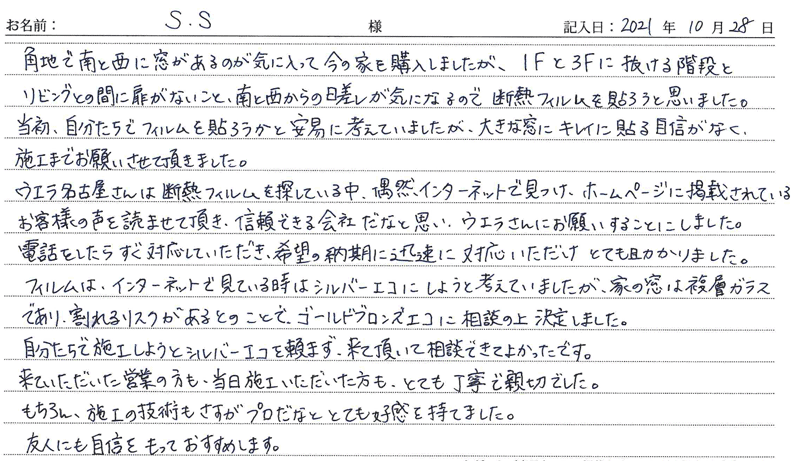 お名前： S.S 様 記入日：2021年10月28日
角地で南と西に窓があるのが気に入って今の家を購入しましたが、1Fと3Fに抜ける階段と
リビングとの間に扉がないこと、南と西からの日差しが気になるので断熱フィルムを貼ろうと思いました。
当初、自分たちでフィルムを貼ろうかと安易に考えていましたが、大きな窓にキレイに貼る自信がなく、
施工までお願いさせて頂きました。
ウエラ名古屋さんは断熱フィルムを探している中、偶然、インターネットで見つけ、ホームページに掲載されている
お客様の声を読ませて頂き、信頼できる会社だなと思い、ウエラさんにお願いすることにしました。
電話をしたらすぐ対応していただき、希望の納期に迅速に対応いただけとても助かりました。
フィルムは、インターネットで見ている時はシルバーエコにしようと考えていましたが、家の窓は複層ガラス
であり、割れるリスクがあるとのことで、ゴールドブロンズエコに相談の上決定しました。
自分たちで施工しようとシルバーエコを頼まず、来て頂いて相談できてよかったです。
来ていただいた営業の方も、当日施工いただいた方も、とても丁寧で親切でした。
もちろん、施工の技術もさすがプロだなととても好感を持てました。
友人にも自信をもっておすすめします。